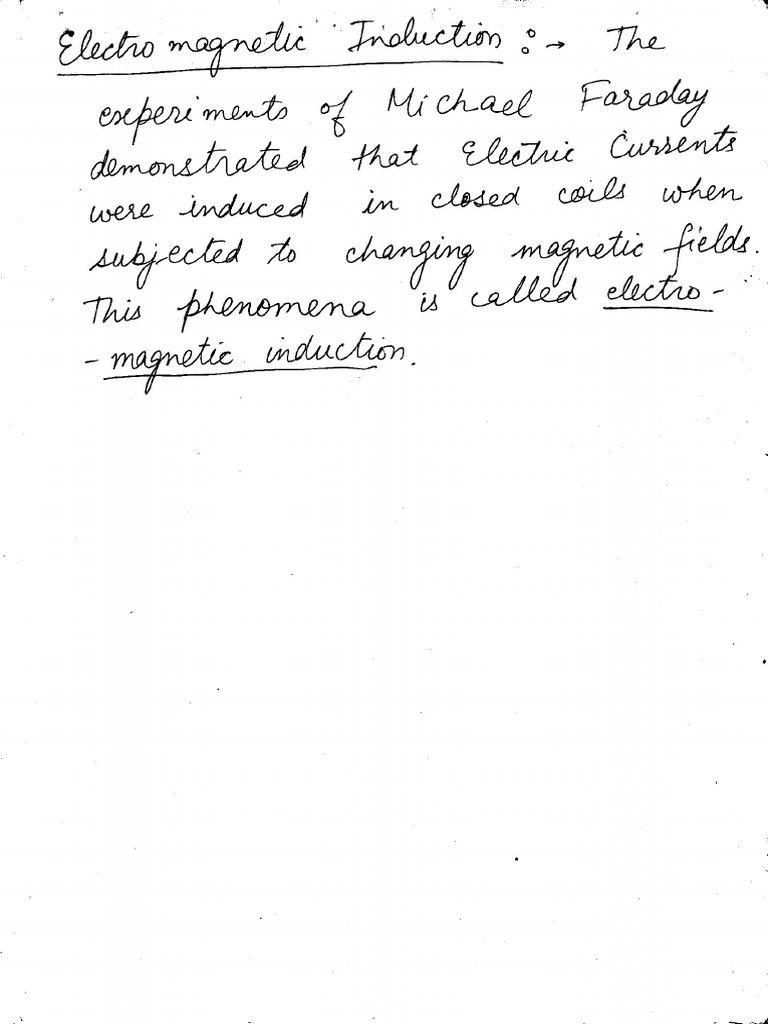 Electro magnetic Induction :→ The
experiments of Michael Faraday
demonstrated that Electric Currents
were induced in closed coils when
subjected to changing magnetic fields.
This phenomena is called electro-
-magnetic induction.